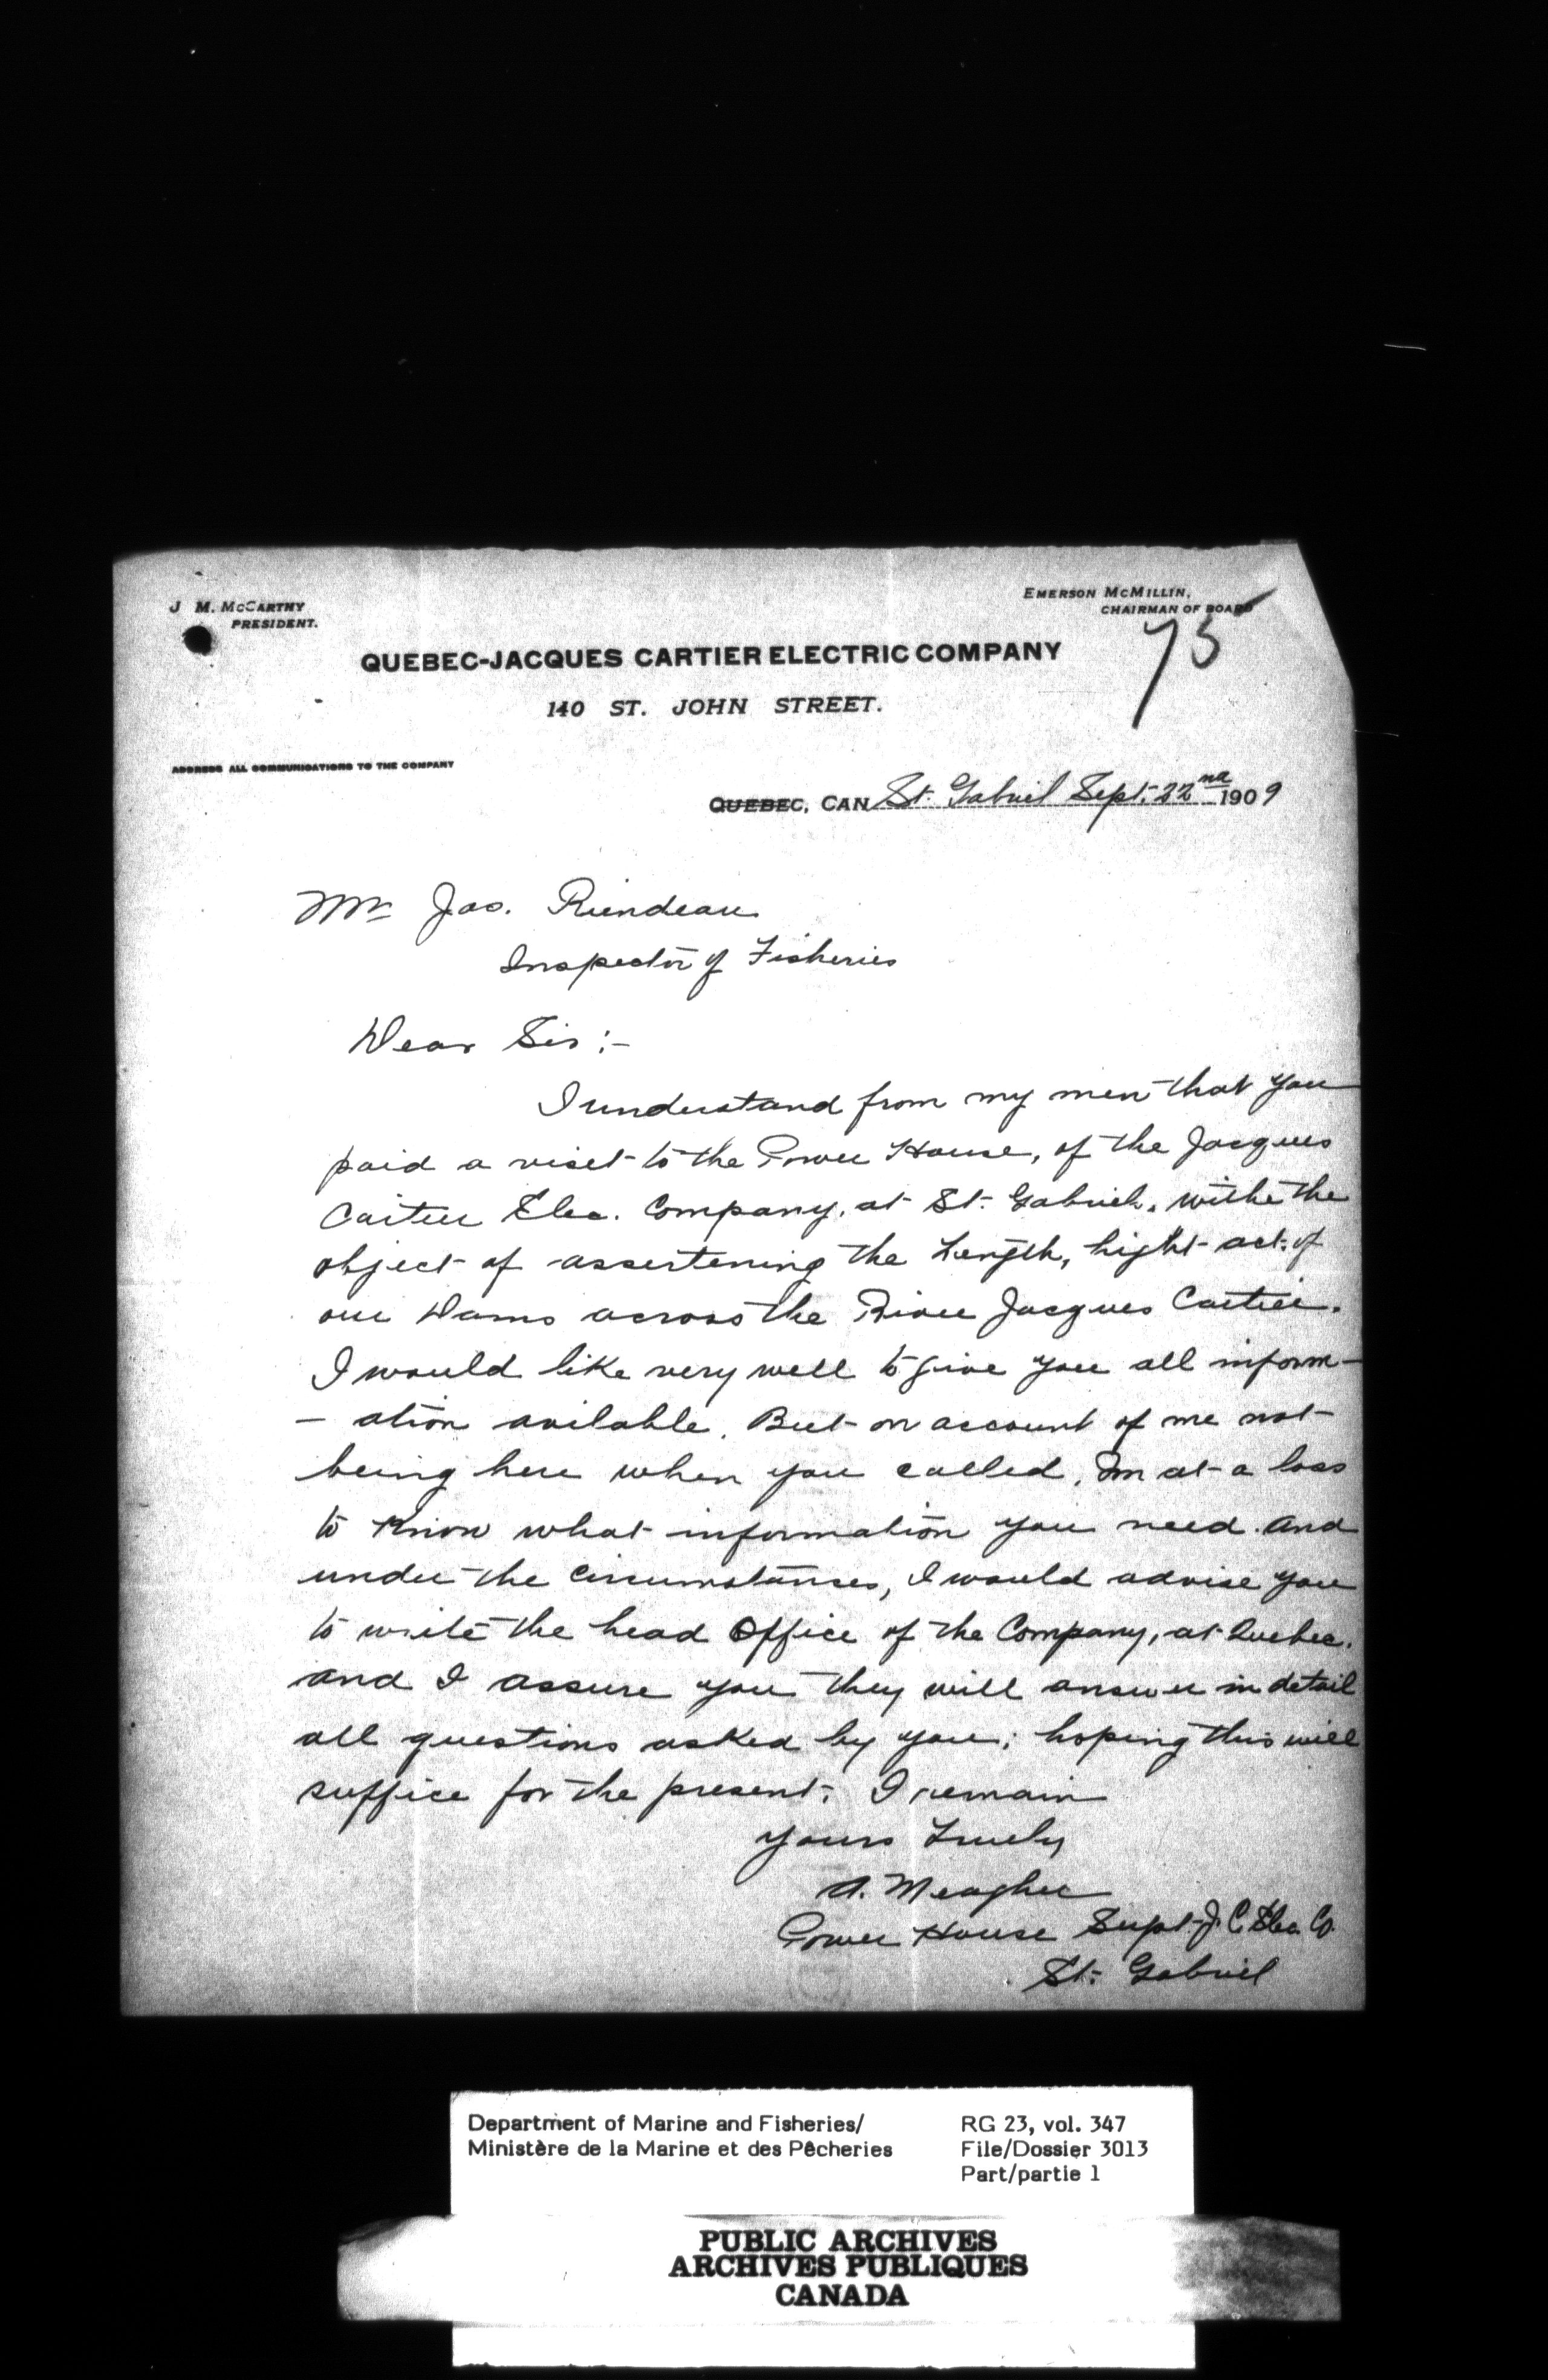 J. M. McCARTHY
PRESIDENT.
EMERSON McMILLIN,
CHAIRMAN OF BOARD
75
QUEBEC-JACQUES CARTIER ELECTRIC COMPANY
140 ST. JOHN STREET.
ADDRESS ALL COMMUNICATIONS TO THE COMPANY
QUEBEC, CAN St. Gabriel Sept. 22nd 1909
Mr Jas. Riendeau
Inspector of Fisheries
Dear Sir :-
I understand from my men that you
paid a viset to the Power House, of the Jacques
Cartier Elec. Company, at St. Gabriel, withe the
object of assertening the Length, hight act. of
our Dams across the River Jacques Cartier.
I would like very well to give you all inform-
- ation avilable. But on account of me not
being here when you called, Im at a loss
to Know what information you need. and
under the circumstances, I would advise you
to write the head Office of the Company, at Quebec.
and I assure you they will answer in detail
all questions asked by you; hoping this will
suffice for the present. I remain
yours Truely
A. Meagher
Power House Supt. J. C. Elec. Co.
St. Gabriel
Department of Marine and Fisheries/
Ministère de la Marine et des Pêcheries
RG 23, vol. 347
File/Dossier 3013
Part/partie 1
PUBLIC ARCHIVES
ARCHIVES PUBLIQUES
CANADA